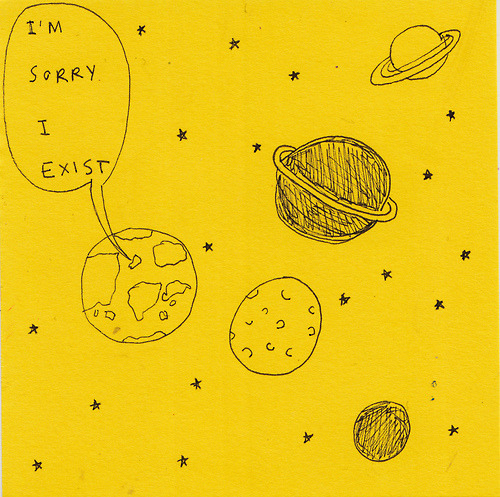 I'M
SORRY
I
EXIST